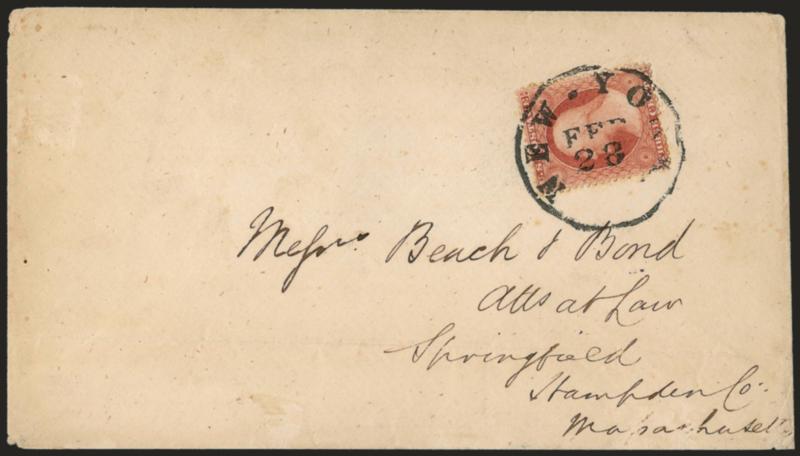 NEW · YORK
FEB
28
Messrs Beach & Bond
Atts at Law
Springfield
Hampden Co.
Massachusetts